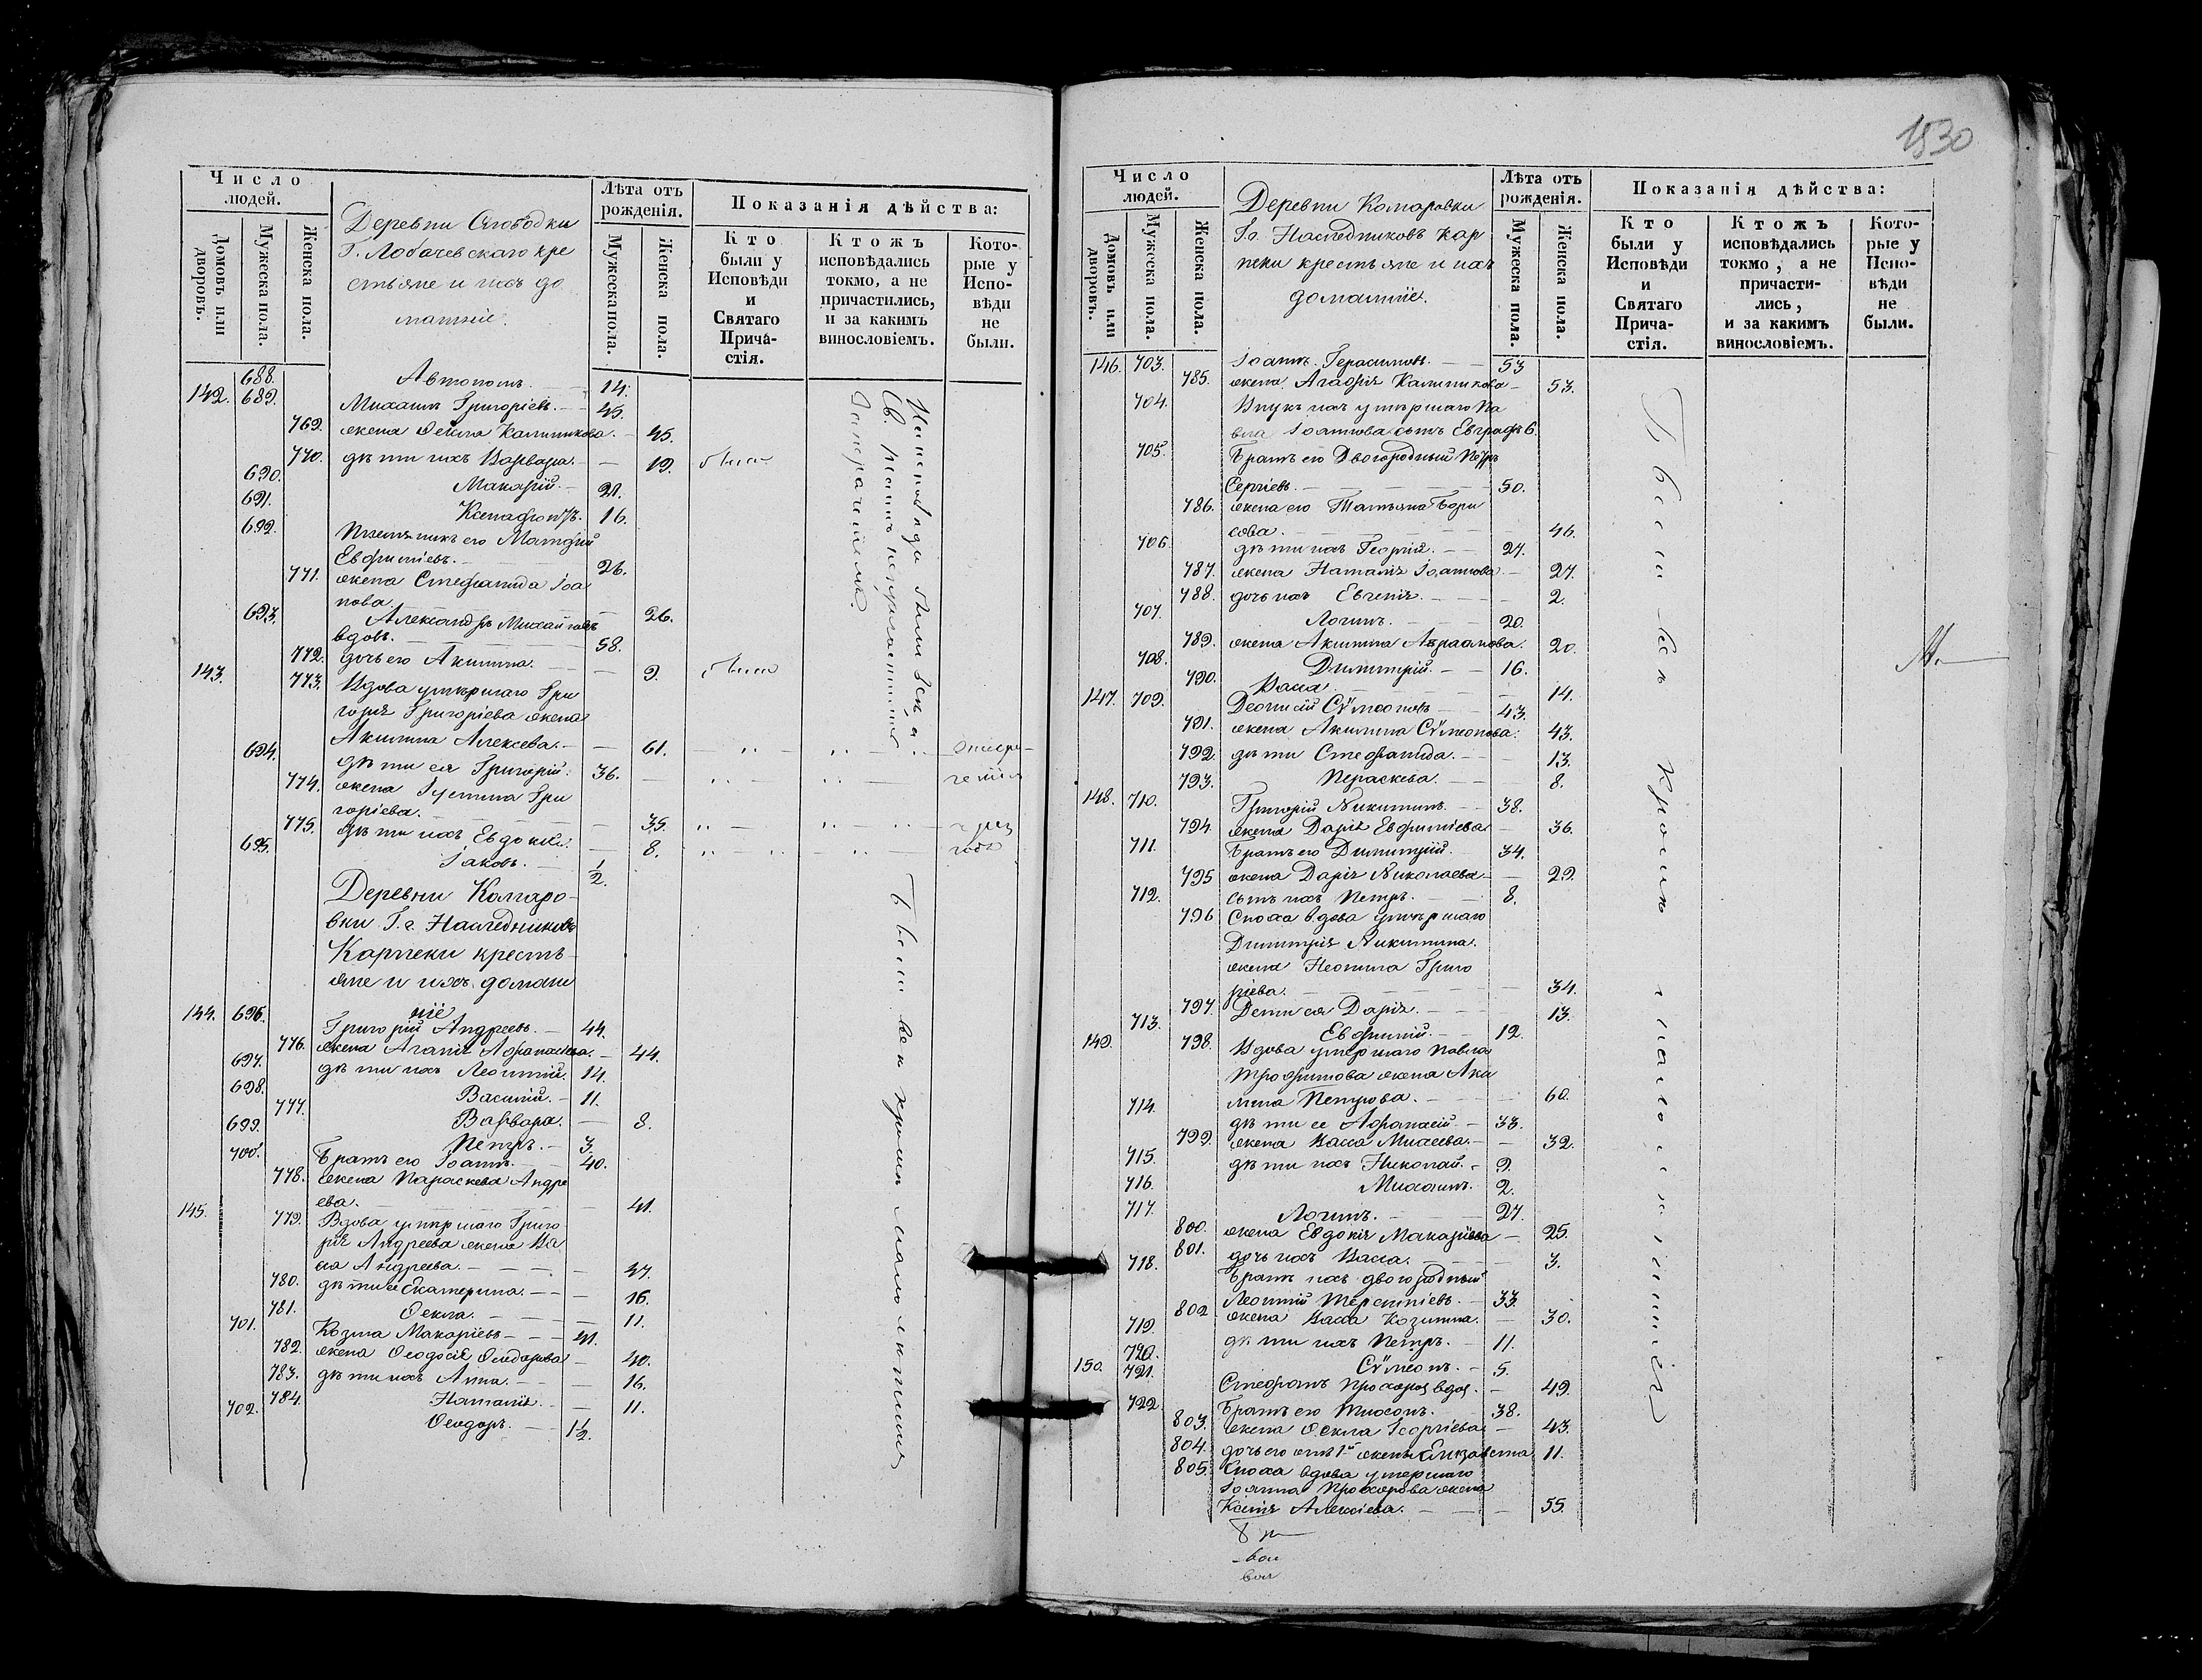 Число людей.
Домовъ или дворовъ.
Мужеска пола.
Женска пола.
Деревни Слободки
Г. Лобачевскаго кре
стьяне и ихъ до
машніе.
Лѣта отъ рожденія.
Мужеска пола.
Женска пола.
Показанія дѣйства:
Кто были у Исповѣди и Святаго Причастія.
Ктожъ исповѣдались токмо, а не причастились, и за какимъ винословіемъ.
Которые у Исповѣди не были.
688. Автономъ. 14.
142. 689. Михаилъ Григоріевъ. 45.
769. жена Ѳекла Калиникова. 45.
770. дѣти ихъ Варвара. 19.
690. Макарій. 21.
691. Ксенофонтъ. 16.
692. Племянникъ его Матфій
Евфиміевъ. 26.
771. жена Стефанида Іоа
нова. 26.
693. Александръ Михайловъ
вдовъ. 58.
772. дочь его Акилина. 9.
143. 773. Вдова умершаго Гри
горія Григоріева жена
Акилина Алексѣева. 61.
694. дѣти ея Григорій. 36.
774. жена Іустина Гри
горіева. 35.
775. дѣти ихъ Евдокія. 8.
695. Іаковъ. 1/2.
Деревни Комаро-
вки Г.г. Наследниковъ
Карпеки кресть-
яне и ихъ домаш
ніе
144. 696. Григорій Андреевъ. 44.
776. жена Агапія Афанасіева. 44.
697. дѣти ихъ Леонтій. 14.
698. Василій. 11.
777. Варвара. 8.
699. Петръ. 3.
700. Братъ его Іоаннъ. 40.
778. жена Параскева Андре
ева. 41.
145. 779. Вдова умершаго Григо
рія Андреева жена Ва
сса Андреева. 47.
780. дѣти ее Екатерина. 16.
781. Ѳекла. 11.
701. Козма Макаріевъ 41.
782. жена Ѳеодосія Ѳеодорова 40.
783. дѣти ихъ Анна. 16.
784. Наталія. 11.
702. Ѳеодоръ. 1 1/2.
Были всѣ кромѣ малолѣтнихъ
1530
Число людей.
Домовъ или дворовъ.
Мужеска пола.
Женска пола.
Деревни Комаровки
Г.г. Наследниковъ Кар
пеки крестьяне и ихъ
домашніе.
Лѣта отъ рожденія.
Мужеска пола.
Женска пола.
Показанія дѣйства:
Кто были у Исповѣди и Святаго Причастія.
Ктожъ исповѣдались токмо, а не причастились, и за какимъ винословіемъ.
Которые у Исповѣди не были.
146. 703. Іоаннъ Герасимовъ. 53
785. жена Агафія Калиникова 53.
704. Внукъ ихъ умершаго Па
вла Іоаннова сынъ Евграфъ 6.
705. Братъ его Двоюродный Петръ
Сергіевъ. 50.
786. жена его Татьяна Бори
сова. 46.
706. дѣти ихъ Георгій. 27.
787. жена Наталія Іоаннова. 27.
788. дочь ихъ Евгенія. 2.
707. Логинъ. 20.
789. жена Акилина Авраамова. 20.
708. Димитрій. 16.
790. Васса 14.
147. 709. Деонисій Сѵмеоновъ 43.
791. жена Акилина Сѵмеонова. 43.
792. дѣти Стефанида. 13.
793. Пераскева. 8.
148. 710. Григорій Никитинъ. 38.
794. жена Дарія Евфиміева 36.
711. Братъ его Димитрій. 34.
795 жена Дарія Николаева 29.
712. сынъ ихъ Петръ. 8.
796 Сноха вдова умершаго
Димитрія Никитина.
жена Неонила Григо
ріева. 34.
797. Дети ея Дарія. 13.
713. Евфимій. 12.
149. 798. Вдова умершаго Павла
Трофимова жена Аки
лина Петрова. 60.
714. дѣти ее Афанасій. 33.
799. жена Васса Михеева. 32.
715. дѣти ихъ Николай. 9.
716. Михаилъ. 2.
717. Логинъ. 27.
800. жена Евдокія Макаріева 25.
801. дочь ихъ Васса. 3.
718. Братъ ихъ двоюродный
Леонтій Терентіевъ. 33.
802 жена Васса Козмина. 30.
719. дѣти ихъ Петръ. 11.
720. Сѵмеонъ. 5.
150. 721. Стефанъ Прохоровъ вдов. 49.
722. Братъ его Тихонъ. 38.
803. жена Ѳекла Георгіева 43.
804. дочь его отъ 1й жены Елизавета 11.
805. Сноха вдова умершаго
Іоанна Прохорова жена
Ксенія Алексіева. 55.
Были всѣ кромѣ малолѣтнихъ